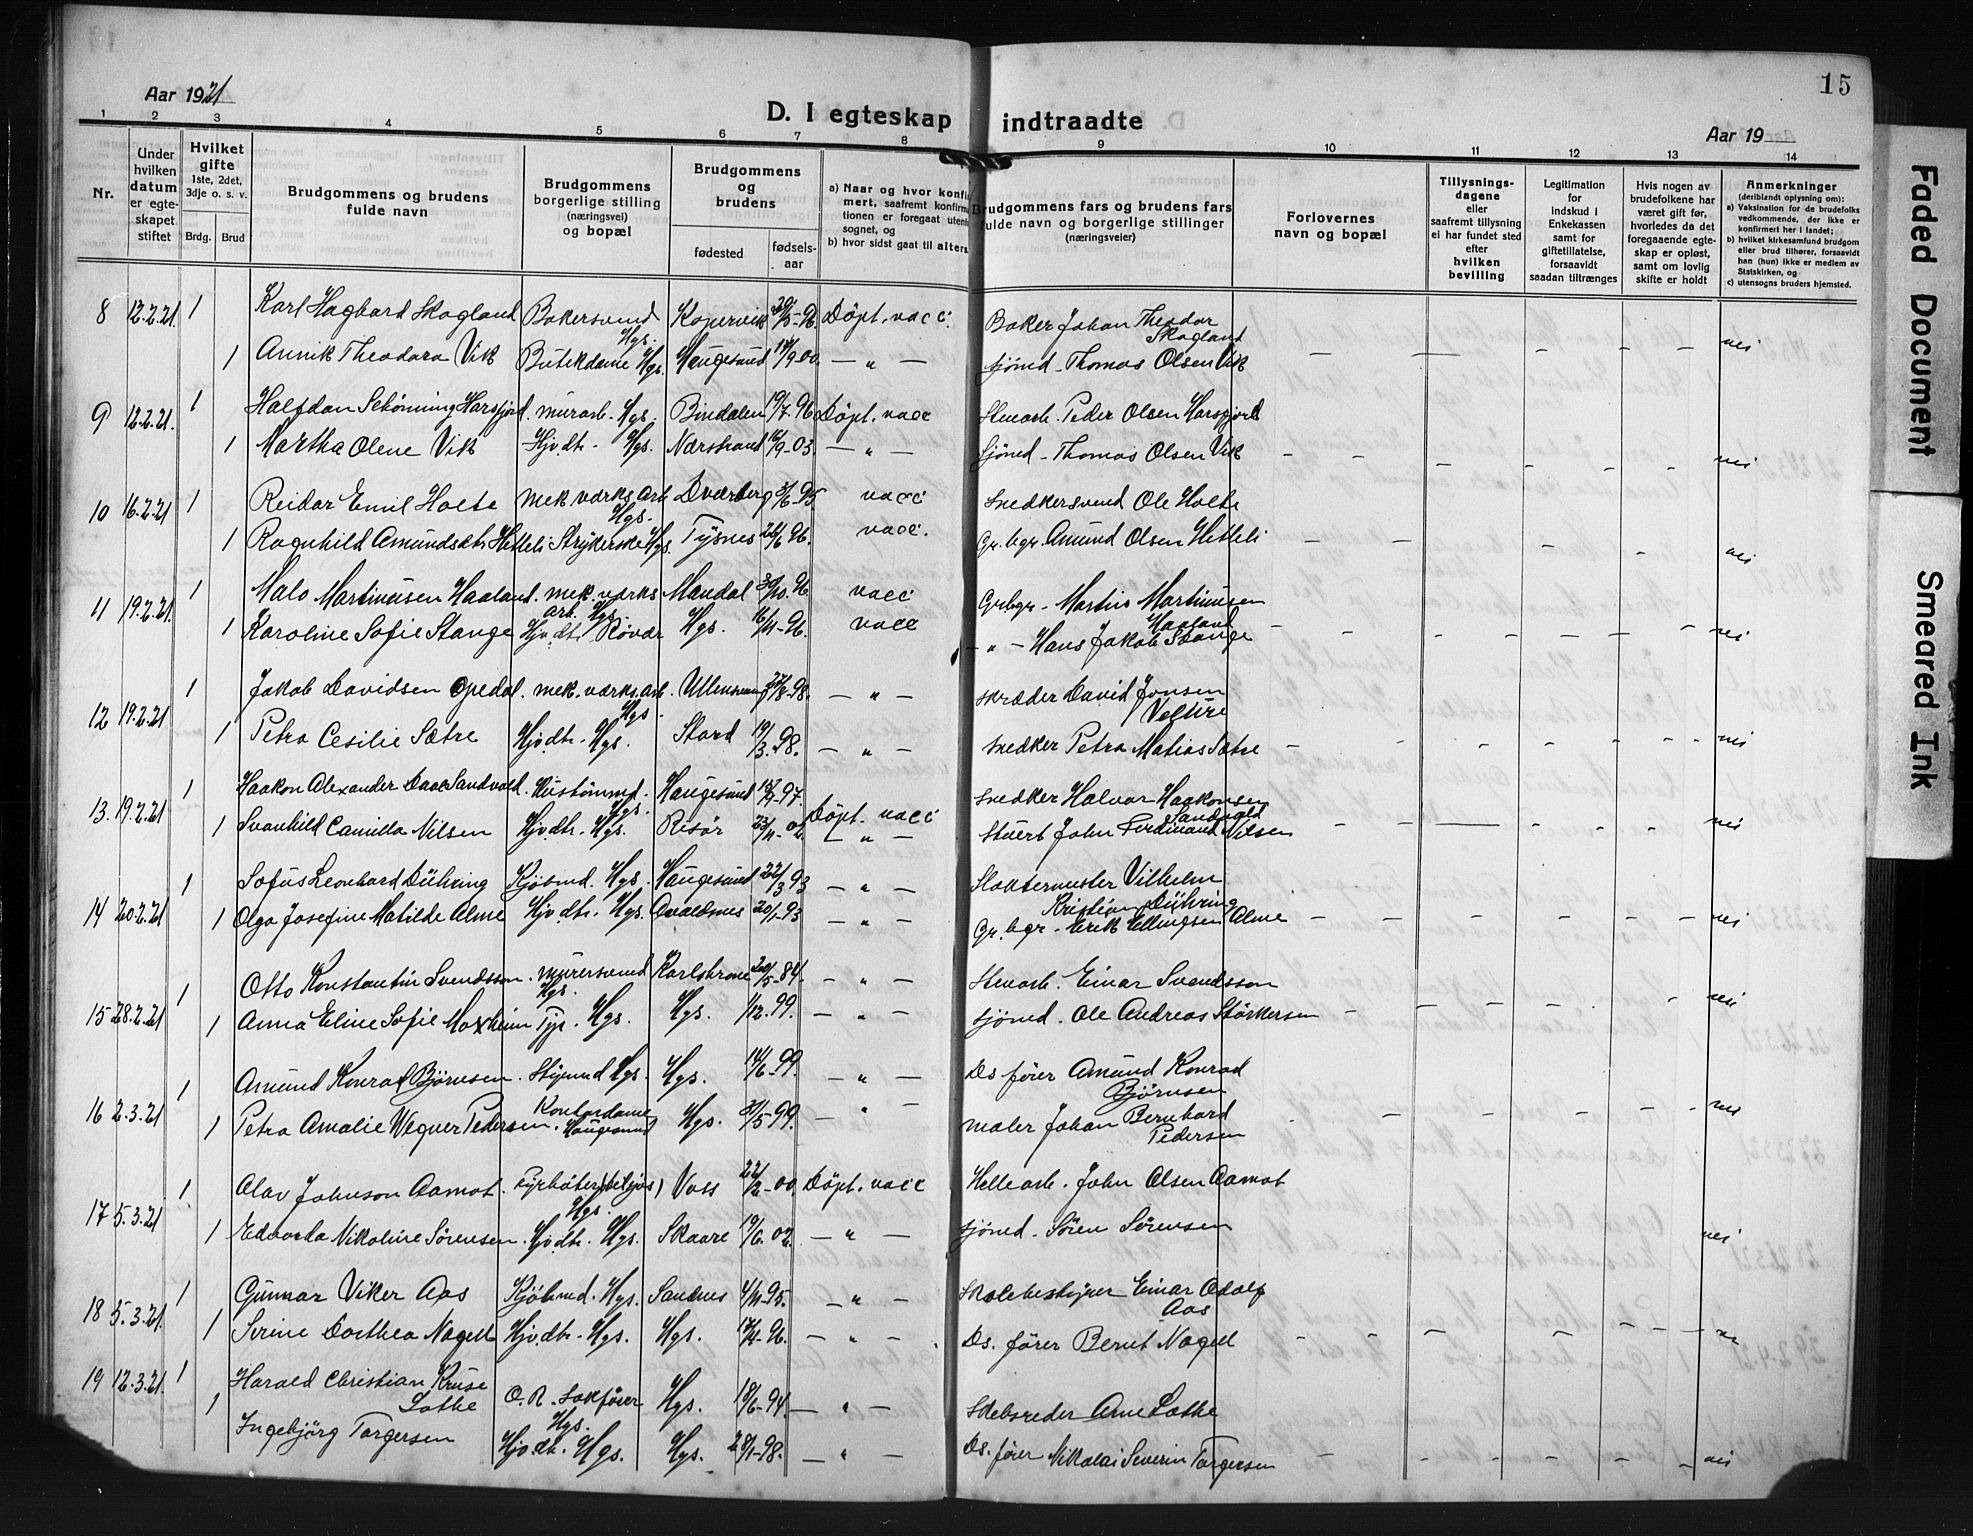 15
Aar 1921
D. I egteskap indtraadte
Aar 19
1 2 3 4 5 6 7 8 9 10 11 12 13 14
Nr.
Under hvilken datum er egteskapet stiftet
Hvilket gifte
1ste, 2det, 3dje o. s. v.
Brdg. Brud
Brudgommens og brudens fulde navn
Brudgommens borgerlige stilling (næringsvei) og bopæl
Brudgommens og brudens
fødested
fødsels-aar
a) Naar og hvor konfirmert, saafremt konfirmationen er foregaat utensognet, og
b) hvor sidst gaat til alters
Brudgommens fars og brudens fars fulde navn og borgerlige stillinger (næringsveier)
Forlovernes navn og bopæl
Tillysnings-dagene eller saafremt tillysning ei har fundet sted efter hvilken bevilling
Legitimation for indskud i Enkekassen samt for giftetillatelse, forsaavidt saadan tiltrænges
Hvis nogen av brudefolkene har været gift før, hvorledes da det foregaaende egteskap er opløst, samt om lovlig skifte er holdt
Anmerkninger
(deriblandt oplysning om):
a) Vaksination for de brudefolks vedkommende, der ikke er konfirmert her i landet;
b) hvilket kirkesamfund brudgom eller brud tilhører, forsaavidt han (hun) ikke er medlem av Statskirken, og
c) utensogns bruders hjemsted.
8 12.2.21. 1 Karl Hagbard Skogland Bakersvend Hgs. Kopervik 96. Döpt. vacc. Baker Johan Theodor Skogland
1 Annik Theodora Vik Butikdame Hgs. Haugesund 14/9 00. — „ — sjömd. Thomas Olsen Vik — — — — — nei
9 12.2.21. 1 Halfdan Schönning Horsfjord. murarb. Hgs. Bindalen 19/7 96 Döpt. vacc Stenarb. Peder Olsen Horsfjord
1 Martha Olene Vik Hjv.dtr. Hgs. Nærstrand 16/9 03. — „ — Sjömd. Thomas Olsen Vik — — — — — — nei
10 16.2.21 1 Reidar Emil Holte mek. værks. arb Hgs. Dverberg 3/6 95 vacc Snedkersvend Ole Holte
1 Ragnhild Amundsdtr. Hetleli Strykerske Hgs. Tysnes 26/6 96. vacc. Gr.bgr. Amund Olsen Hetleli — — — — — nei
11 19.2.21. 1 Malo Martinusen Haaland. mek. værks arb. Hgs. Mandal 30/10. 96 vacc Gr.bgr. Martin Martinusen Haaland
1 Karoline Sofie Stange Hjv.dtr. Røvær Hgs. 16/11-96. vacc — „ — Hans Jakob Stange — — — — — — nei
12 19.2.21 1 Jakob Davidsen Opedal. mek. værks. arb. Hgs. Ullensvang 98. — „ — skræder David Jonsen
1 Petra Cesilie Sætre Hjv.dtr. Hgs. Stord 19/3. 98. — „ — snedker Petra Matias Sætre — — — — — — nei
13. 19.2.21 1 Haakon Alexander Daae Sandvold. Hustömmd. Hgs. Haugesund 97. Döpt. vacc Snedker Halvor Haakonsen Sandvold
1 Svanhild Camilla Nilsen Hjv.dtr. Hgs. Risör 23/11 02 — „ — Stuert John Ferdinand Nilsen — — — — — nei
14 20.2.21 1 Sofus Leonhard Dühring Kjöbmd. Hgs. Haugesund 22/3 93 — „ — Slaktermester Vilhelm Kristian Dühring
1 Olga Josefine Matilde Alme Hjv.dtr. Hgs. Avaldsnes 20/1-93 — „ — Gr.bgr. Erik Ellingsen Alme — — — — — — nei
15 28.2.21 1 Otto Konstantin Svendsson. murersvend Hgs. Karlskrona 20/5-84. — „ — Stenarb. Einar Svendsson
1 Anna Eline Sofie Moxheim Tjp. Hgs. Hgs. 1/12. 99. — „ — sjömd. Ole Andreas Störkersen — — — — — nei
16 2.3.21 1 Amund Konrad Björnsen. Styrmd Hgs. Hgs. 14/6-99. — „ — Ds. förer Amund Konrad Björnsen
1 Petra Amalie Wegner Pedersen. Kontordame Haugesund Hgs. 31/5-99. — „ — maler Johan Bernhard Pedersen — — — — — — nei
17 5.3.21 1 Olav Johnson Aamot. Fyrböter Hgs. Voss 22/12-00 Döpt. vacc Hellearb. John Olsen Aamot
1 Edvarda Nikoline Sörensen. Hjv.dtr. Hgs. Skaare 19/6. 02. — „ — sjömd. Sören Sörensen nei
18 5.3.21. 1 Gunnar Viker Aas Kjöbmd. Hgs. Sandnes 4/11-95. — „ — Skolebestyrer Einar Adolf Aas
1 Serine Dorthea Nagell Hjv.dtr. Hgs. Hgs. 17/4-96. — „ — Ds. förer Bernt Nagell — — — — — —
19 12.3.21. 1 Harald Christian Kruse Lothe O. R. Sakförer Hgs. Hgs. 18/6-94. — „ — Skibsreder Arne Lothe
1 Ingebjörg Torgersen Hjv.dtr. Hgs. Hgs. 28/1-98. — „ — Ds. förer Nikolai Severin Torgersen — — — — — — nei
Faded Document
Smeared Ink